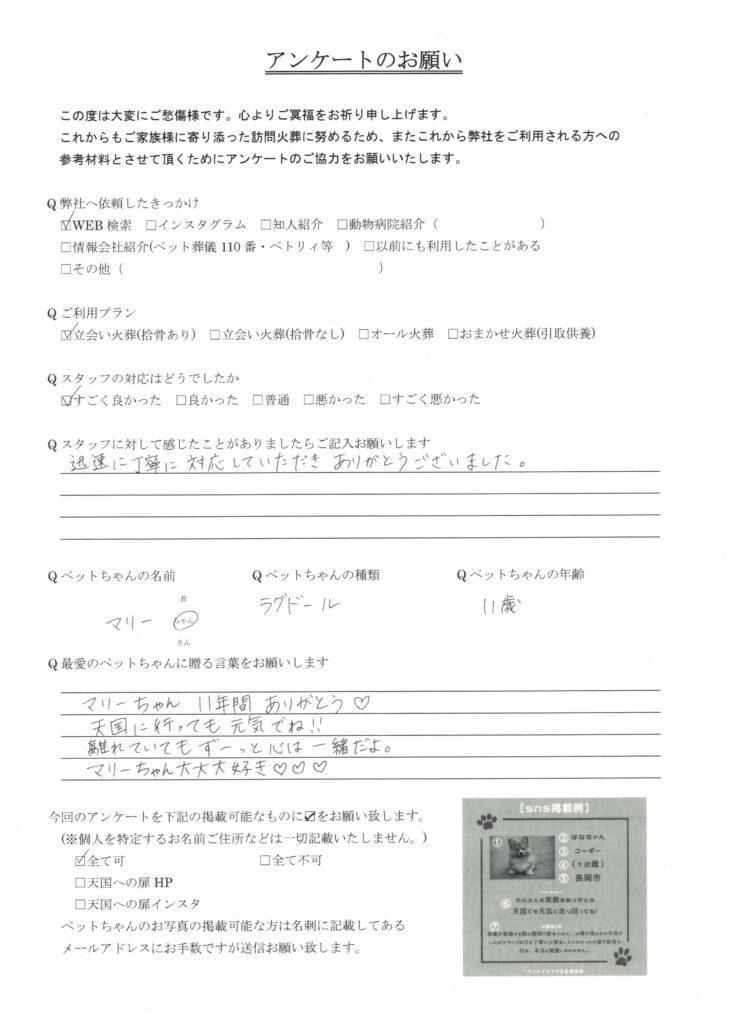 アンケートのお願い
この度は大変にご愁傷様です。心よりご冥福をお祈り申し上げます。
これからもご家族様に寄り添った訪問火葬に努めるため、またこれから弊社をご利用される方への
参考材料とさせて頂くためにアンケートのご協力をお願いいたします。
Q 弊社へ依頼したきっかけ
☑WEB 検索 □インスタグラム □知人紹介 □動物病院紹介（ ）
□情報会社紹介(ペット葬儀 110 番・ペトリィ等 ) □以前にも利用したことがある
□その他（ ）
Q ご利用プラン
☑立会い火葬(拾骨あり) □立会い火葬(拾骨なし) □オール火葬 □おまかせ火葬(引取供養)
Q スタッフの対応はどうでしたか
☑すごく良かった □良かった □普通 □悪かった □すごく悪かった
Q スタッフに対して感じたことがありましたらご記入お願いします
迅速に丁寧に対応していただきありがとうございました。
Q ペットちゃんの名前 Q ペットちゃんの種類 Q ペットちゃんの年齢
君
マリー ちゃん ラグドール 11歳
さん
Q 最愛のペットちゃんに贈る言葉をお願いします
マリーちゃん 11年間 ありがとう♡
天国に行っても元気でね!!
離れていてもずーっと心は一緒だよ。
マリーちゃん大大大好き♡♡♡
今回のアンケートを下記の掲載可能なものに☑をお願い致します。
(※個人を特定するお名前ご住所などは一切記載いたしません。)
☑全て可 □全て不可
□天国への扉 HP
□天国への扉インスタ
ペットちゃんのお写真の掲載可能な方は名刺に記載してある
メールアドレスにお手数ですが送信お願い致します。
【sns掲載例】
① ② はなちゃん
③ コーギー
④ （12歳）
⑤ 長岡市
⑥ たくさんの笑顔をありがとう
天国でも元気に走り回ってね!
⑦